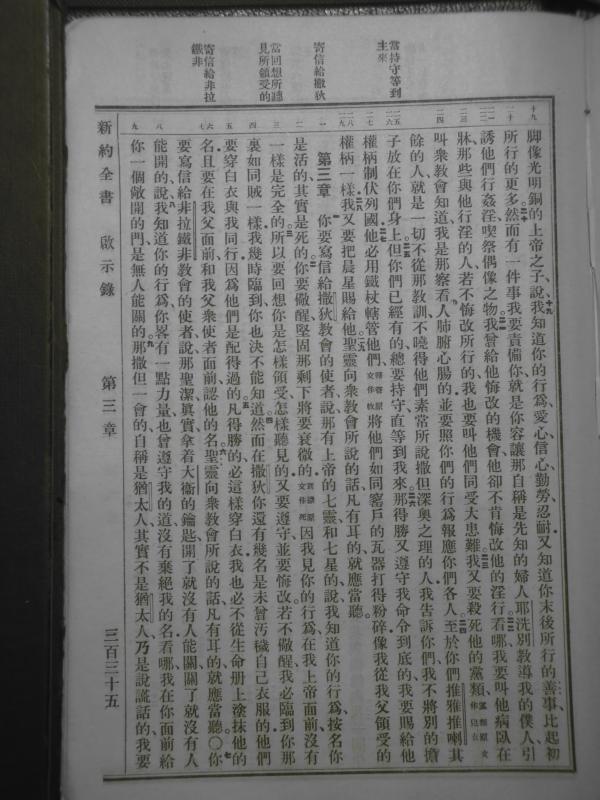 當持守等到
主來
寄信給撒狄
當回想所聽
見所領受的
寄信給非拉
鐵非
脚像光明銅的上帝之子說我知道你的行爲愛心信心勤勞忍耐又知道你末後所行的善事比起初
所行的更多然而有一件事我要責備你就是你容讓那自稱是先知的婦人耶洗別教導我的僕人引
誘他們行姦淫喫祭偶像之物我曾給他悔改的機會他卻不肯悔改他的淫行看哪我要叫他病臥在
牀那些與他行淫的人若不悔改所行的我也要叫他們同受大患難我又要殺死他的黨類黨類原文作兒女
叫衆教會知道我是那察看人肺腑心腸的並要照你們的行爲報應你們各人至於你們推雅推喇其
餘的人就是一切不從那教訓不曉得他們素常所說撒但深奧之理的人我告訴你們我不將別的擔
子放在你們身上但你們已經有的總要持守直等到我來那得勝又遵守我命令到底的我要賜給他
權柄制伏列國他必用鐵杖轄管他們轄管原文作牧將他們如同窰戶的瓦器打得粉碎像我從我父領受的
權柄一樣我又要把晨星賜給他聖靈向衆教會所說的話凡有耳的就應當聽
第三章 你要寫信給撒狄教會的使者說那有上帝的七靈和七星的說我知道你的行爲按名你
是活的其實是死的你要儆醒堅固那剩下將要衰微的衰微原文作死因我見你的行爲在我上帝面前沒有
一樣是完全的所以要回想你是怎樣領受怎樣聽見的又要遵守並要悔改若不儆醒我必臨到你那
裏如同賊一樣我幾時臨到你也決不能知道然而在撒狄你還有幾名是未曾污穢自己衣服的他們
要穿白衣與我同行因爲他們是配得過的凡得勝的必這樣穿白衣我也必不從生命册上塗抹他的
名且要在我父面前和我父衆使者面前認他的名聖靈向衆教會所說的話凡有耳的就應當聽〇你
要寫信給非拉鐵非教會的使者說那聖潔眞實拿着大衛的鑰匙開了就沒有人能關關了就沒有人
能開的說我知道你的行爲你畧有一點力量也曾遵守我的道沒有棄絕我的名看哪我在你面前給
你一個敞開的門是無人能關的那撒但一會的自稱是猶太人其實不是猶太人乃是說謊話的我要
新約全書 啟示錄 第三章 三百三十五